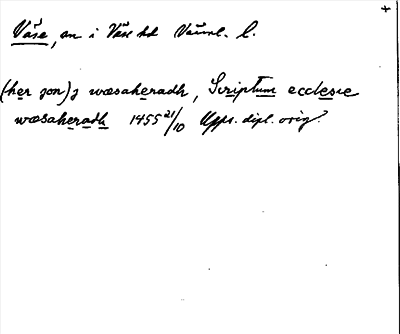 +
Väse, sn i Väse hd Värml. l.
(her jon) j wæsaheradh, Scriptum ecclesie
wæsaheradh 1455 21/10 Upps. dipl. orig.